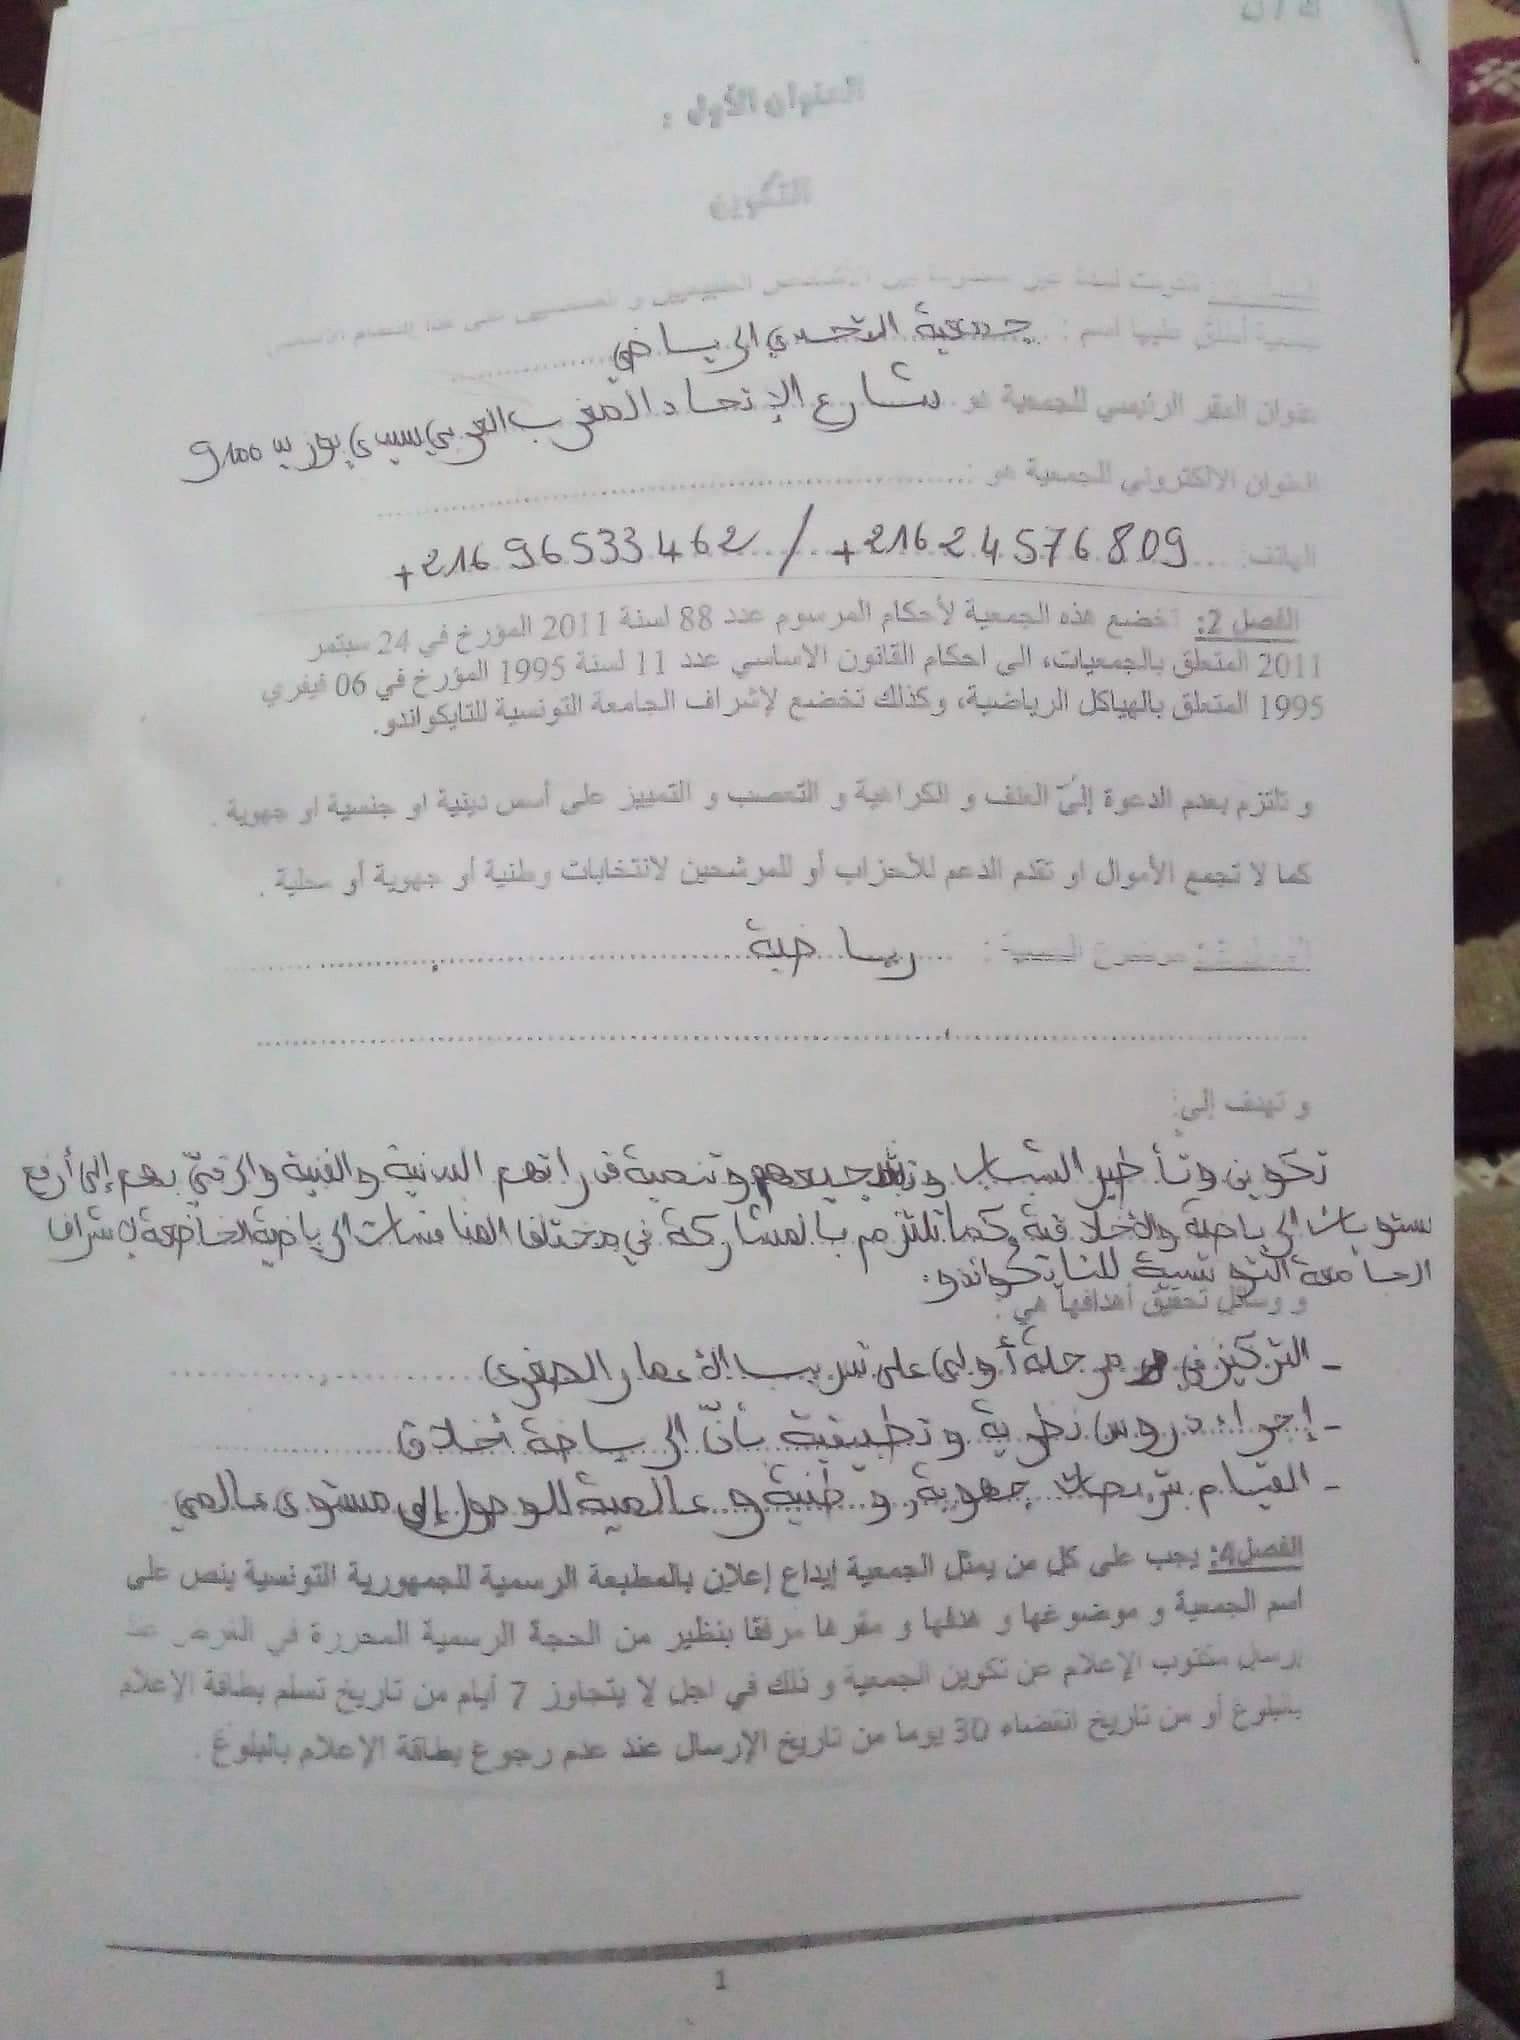 العنوان الأول :
التكوين
جمعية أطلق عليها اسم : جمعية التحدي الرياضي
عنوان المقر الرئيسي للجمعية هو شارع الإتحاد المغرب العربي سيدي بوزيد 9100
العنوان الالكتروني للجمعية هو :
الهاتف: +216 24576809 / +216 96533462
الفصل 2: تخضع هذه الجمعية لأحكام المرسوم عدد 88 لسنة 2011 المؤرخ في 24 سبتمر
2011 المتعلق بالجمعيات، الى احكام القانون الاساسي عدد 11 لسنة 1995 المؤرخ في 06 فيفري
1995 المتعلق بالهياكل الرياضية، وكذلك تخضع لإشراف الجامعة التونسية للتايكواندو.
و تلتزم بعدم الدعوة إلىّ العنف و الكراهية و التعصب و التمييز على أسس دينية او جنسية او جهوية .
كما لا تجمع الأموال او تقدم الدعم للأحزاب أو للمرشحين لانتخابات وطنية أو جهوية أو محلية .
موضوع الجمعية : رياضية
و تهدف إلى:
تكوين وتأطير الشباب وتشجيعهم وتنمية قدراتهم البدنية والفنية والرقيّ بهم إلى أرفع
مستويات الرياضية والأخلاقية وكما تلتزم بالمشاركة في مختلف المنافسات الرياضية الخاضعة لإشراف
الجامعة التونسية للتايكواندو.
و وسائل تحقيق أهدافها هي :
- التركيز في مرحلة أولى على تدريب الأعمار الصغرى
- إجراء دروس نظرية وتطبيقية بأنّ الرياضة أخلاق
- القيام بتربصات جهوية, وطنية وعالمية للوصول إلى مستوى عالمي
الفصل4: يجب على كل من يمثل الجمعية إيداع إعلان بالمطبعة الرسمية للجمهورية التونسية ينص على
اسم الجمعية و موضوعها و هدفها و مقرها مرفقا بنظير من الحجة الرسمية المحررة في الغرض عند
إرسال مكتوب الإعلام عن تكوين الجمعية و ذلك في اجل لا يتجاوز 7 أيام من تاريخ تسلم بطاقة الإعلام
بالبلوغ أو من تاريخ انقضاء 30 يوما من تاريخ الإرسال عند عدم رجوع بطاقة الإعلام بالبلوغ .
1